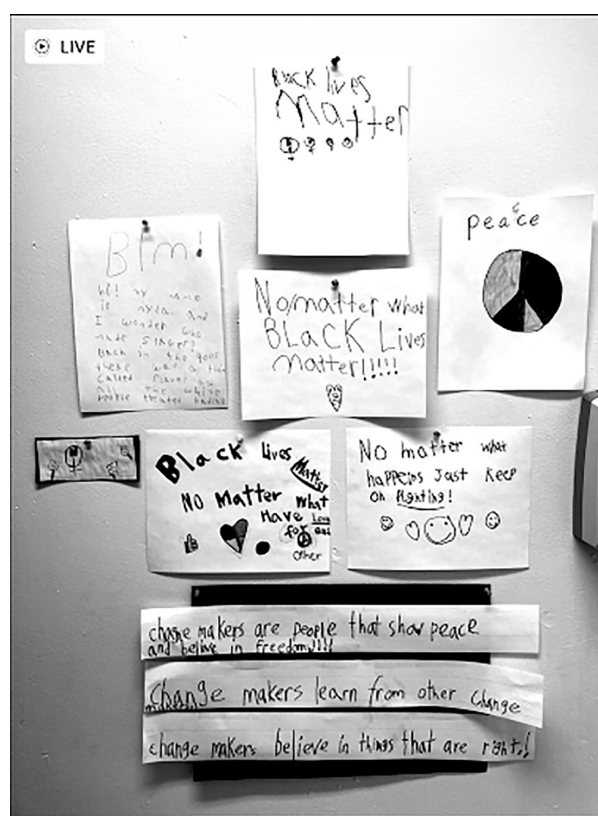 LIVE
Black lives
Matter
peace
Blm!
Hi! my name
is nyla and
I wonder who
made slavery
Back in the 1900s
there was a
called slaves
all the white
people
No matter what
BLaCK Lives
matter!!!!!
Black lives
Matter
NO Matter what
Have Love
for
other
No matter what
happens Just keep
on fighting!
change makers are people that show peace
and belive in freedom!!!!
Change makers learn from other change
change makers believe in things that are right!